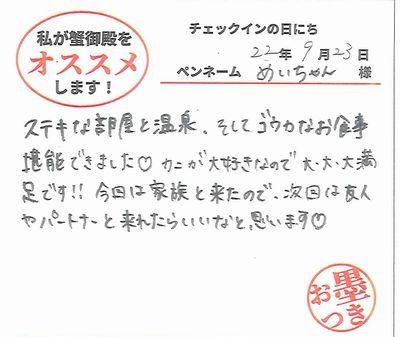 私が蟹御殿を
オススメ
します！
チェックインの日にち
22年9月23日
ペンネーム めいちゃん 様
ステキな部屋と温泉、そしてゴウカなお食事
堪能できました♡ カニが大好きなので 大・大・大満
足です!! 今回は家族と来たので、次回は友人
やパートナーと来れたらいいなと、思います♡
お墨
つき